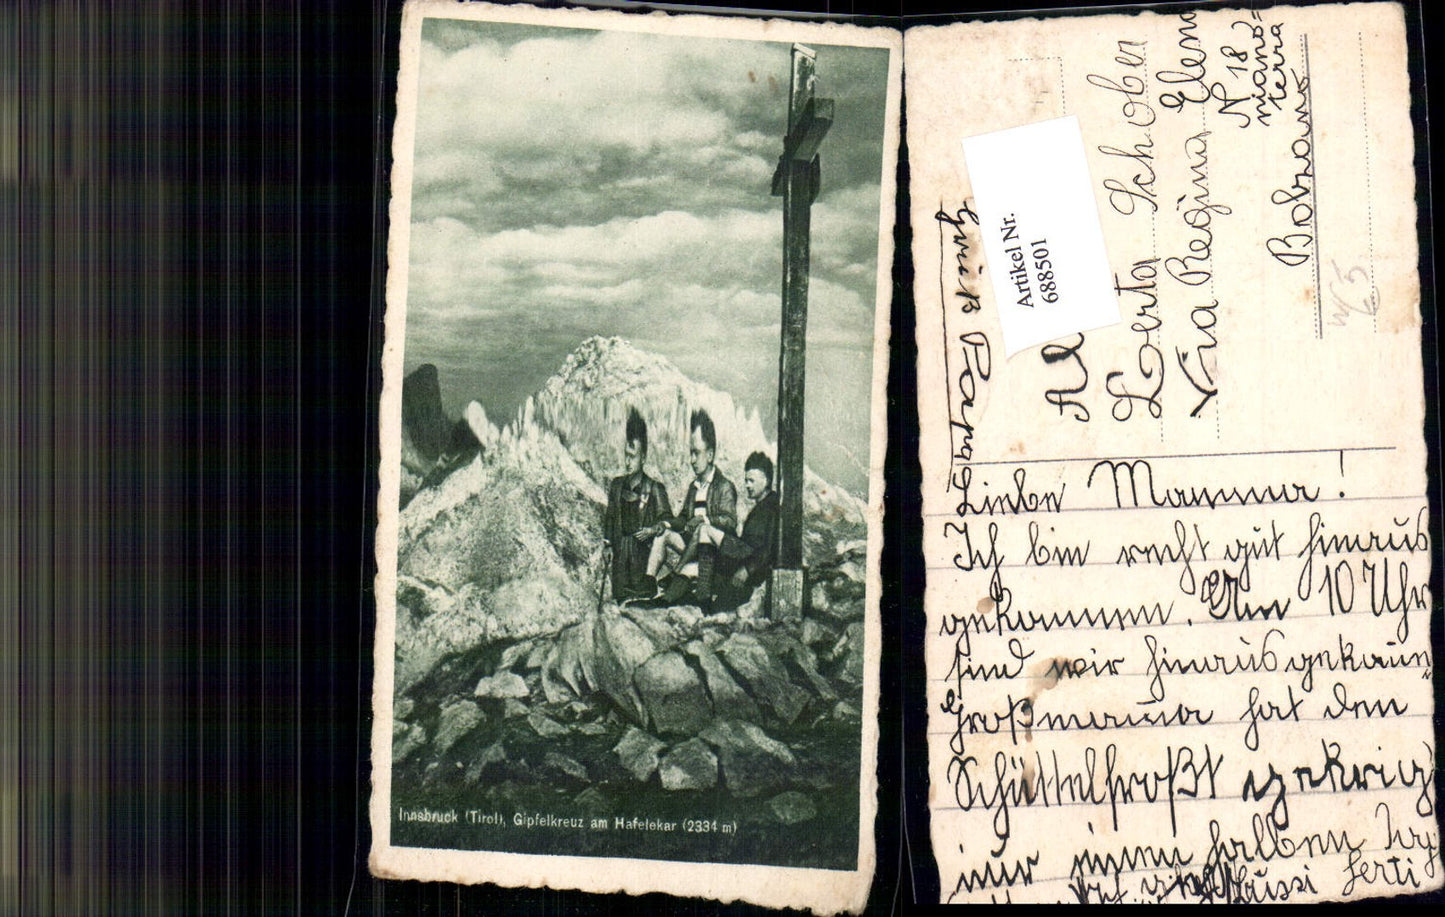 Innsbruck (Tirol), Gipfelkreuz am Hafelekar (2334 m)
Artikel Nr.
688501
Gruß Papa
Al
Lerta Schober
Via Regina Elena
N 18
miano=
terra
Bolzano
65
Liebe Mamma!
Ich bin recht gut hinaus
gekommen. Um 10 Uhr
sind wir hinaus gekom
Großmama hat den
Schüttelfroßt gekrieg
nur einen halben Tag
Bussi Herti